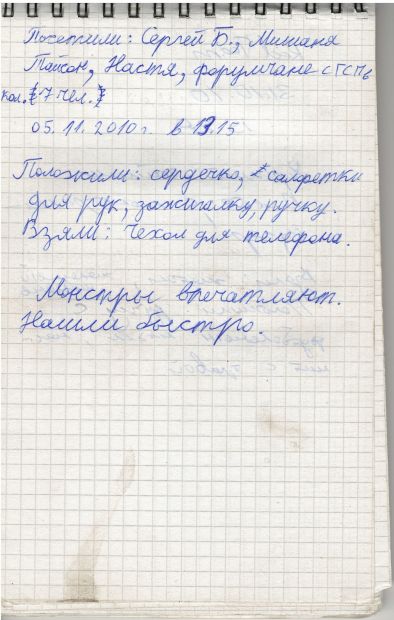 Посетили: Сергей Б., Милианя
Пайсон, Настя, форумчане с
кол. (7 чел.)
05.11.2010г. в 13.15
Положили: сердечко, салфетки
для рук, зажигалку, ручку.
Взяли: Чехол для телефона.
Монстры впечатляют.
Нашли быстро.